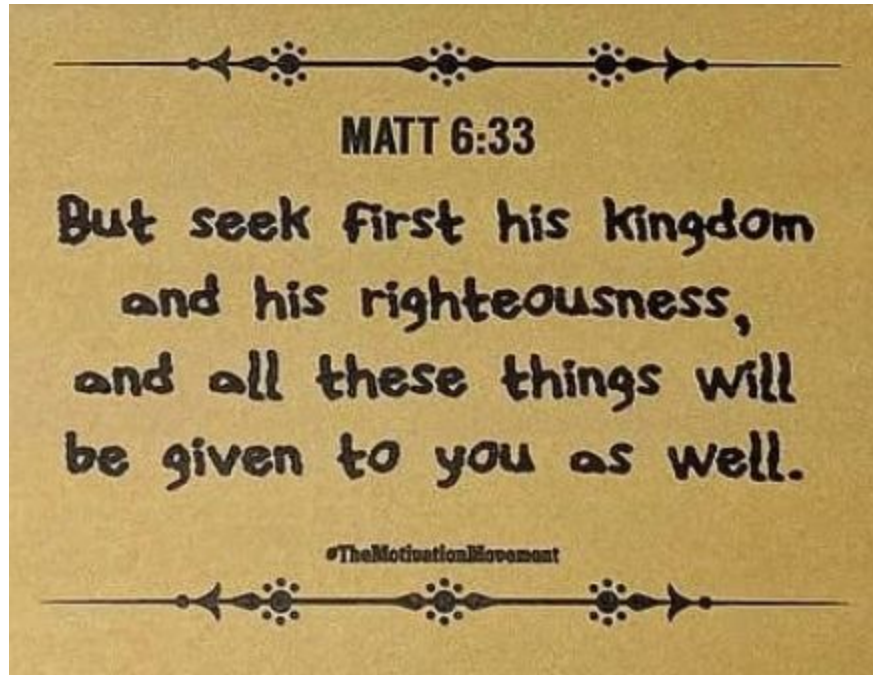 MATT 6:33
But seek first his kingdom
and his righteousness,
and all these things will
be given to you as well.
#TheMotivationMovement